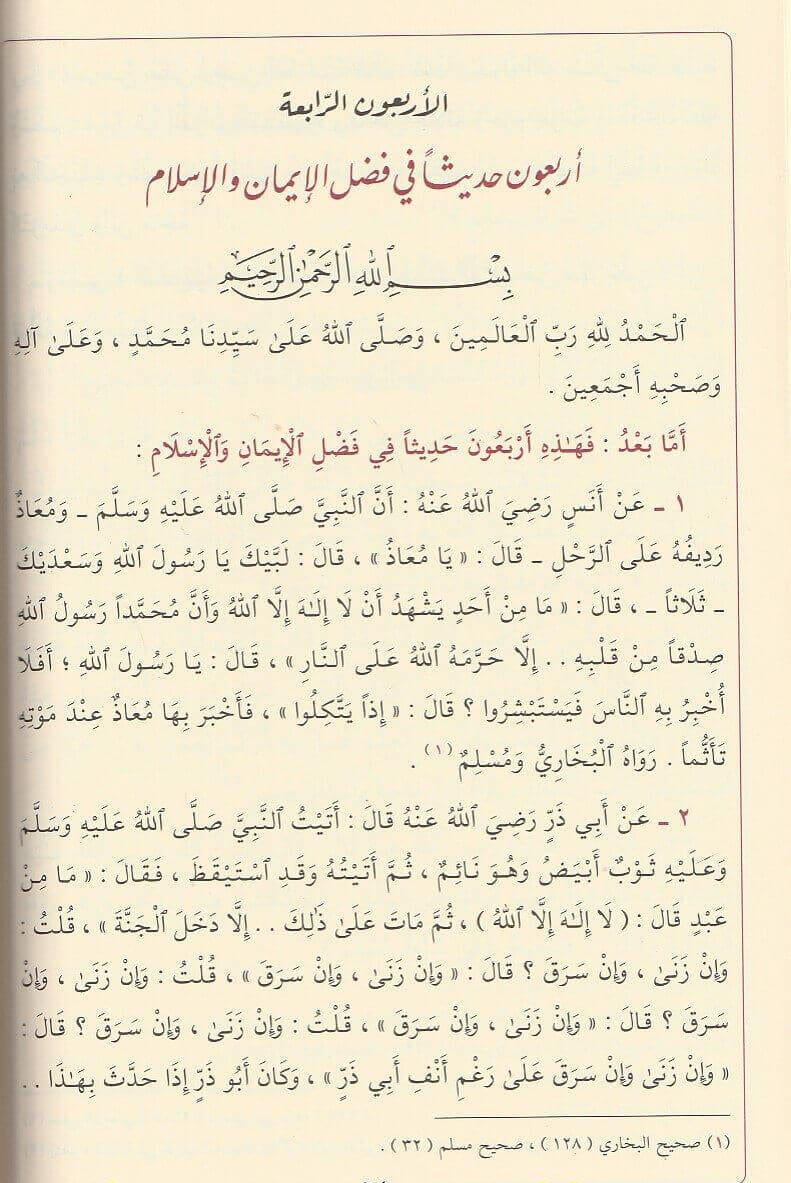 الأربعون الرّابعة
أربعون حديثاً في فضل الإيمان والإسلام
بِسْمِ ٱللهِ ٱلرَّحْمَٰنِ ٱلرَّحِيمِ
ٱلْحَمْدُ لِلهِ رَبِّ ٱلْعَالَمِينَ ، وَصَلَّى ٱللهُ عَلَىٰ سَيِّدِنَا مُحَمَّدٍ ، وَعَلَىٰ آلِهِ
وَصَحْبِهِ أَجْمَعِينَ .
أَمَّا بَعْدُ : فَهَـٰذِهِ أَرْبَعُونَ حَدِيثاً فِي فَضْلِ ٱلْإِيمَانِ وَٱلْإِسْلَامِ :
١ ـ عَنْ أَنَسٍ رَضِيَ ٱللهُ عَنْهُ : أَنَّ ٱلنَّبِيَّ صَلَّى ٱللهُ عَلَيْهِ وَسَلَّمَ ـ وَمُعَاذٌ
رَدِيفُهُ عَلَى ٱلرَّحْلِ ـ قَالَ : « يَا مُعَاذُ » ، قَالَ : لَبَّيْكَ يَا رَسُولَ ٱللهِ وَسَعْدَيْكَ
ـ ثَلَاثاً ـ ، قَالَ : « مَا مِنْ أَحَدٍ يَشْهَدُ أَنْ لَا إِلَـٰهَ إِلَّا ٱللهُ وَأَنَّ مُحَمَّداً رَسُولُ ٱللهِ
صِدْقاً مِنْ قَلْبِهِ . . إِلَّا حَرَّمَهُ ٱللهُ عَلَى ٱلنَّارِ » ، قَالَ : يَا رَسُولَ ٱللهِ ؛ أَفَلَا
أُخْبِرُ بِهِ ٱلنَّاسَ فَيَسْتَبْشِرُوا ؟ قَالَ : « إِذاً يَتَّكِلُوا » ، فَأَخْبَرَ بِهَا مُعَاذٌ عِنْدَ مَوْتِهِ
تَأَثُّماً . رَوَاهُ ٱلْبُخَارِيُّ وَمُسْلِمٌ (١) .
٢ ـ عَنْ أَبِي ذَرٍّ رَضِيَ ٱللهُ عَنْهُ قَالَ : أَتَيْتُ ٱلنَّبِيَّ صَلَّى ٱللهُ عَلَيْهِ وَسَلَّمَ
وَعَلَيْهِ ثَوْبٌ أَبْيَضُ وَهُوَ نَائِمٌ ، ثُمَّ أَتَيْتُهُ وَقَدِ ٱسْتَيْقَظَ ، فَقَالَ : « مَا مِنْ
عَبْدٍ قَالَ : ( لَا إِلَـٰهَ إِلَّا ٱللهُ ) ، ثُمَّ مَاتَ عَلَىٰ ذَٰلِكَ . . إِلَّا دَخَلَ ٱلْجَنَّةَ » ، قُلْتُ :
وَإِنْ زَنَىٰ ، وَإِنْ سَرَقَ ؟ قَالَ : « وَإِنْ زَنَىٰ ، وَإِنْ سَرَقَ » ، قُلْتُ : وَإِنْ زَنَىٰ ، وَإِنْ
سَرَقَ ؟ قَالَ : « وَإِنْ زَنَىٰ ، وَإِنْ سَرَقَ » ، قُلْتُ : وَإِنْ زَنَىٰ ، وَإِنْ سَرَقَ ؟ قَالَ :
« وَإِنْ زَنَىٰ وَإِنْ سَرَقَ عَلَىٰ رَغْمِ أَنْفِ أَبِي ذَرٍّ » ، وَكَانَ أَبُو ذَرٍّ إِذَا حَدَّثَ بِهَـٰذَا . .
(١) صحيح البخاري ( ١٢٨ ) ، صحيح مسلم ( ٣٢ ) .